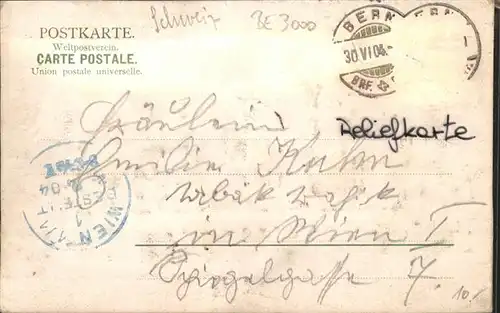 Schweiz BE 3000
POSTKARTE.
Weltpostverein.
CARTE POSTALE.
Union postale universelle.
BERN
30.VI.04
BRF.
BERN
Reliefkarte
Fräulein
Emilie
Tabak Trafik
in Wien I
Spiegelgasse 7.
WIEN
BESTELLT
04
10.-